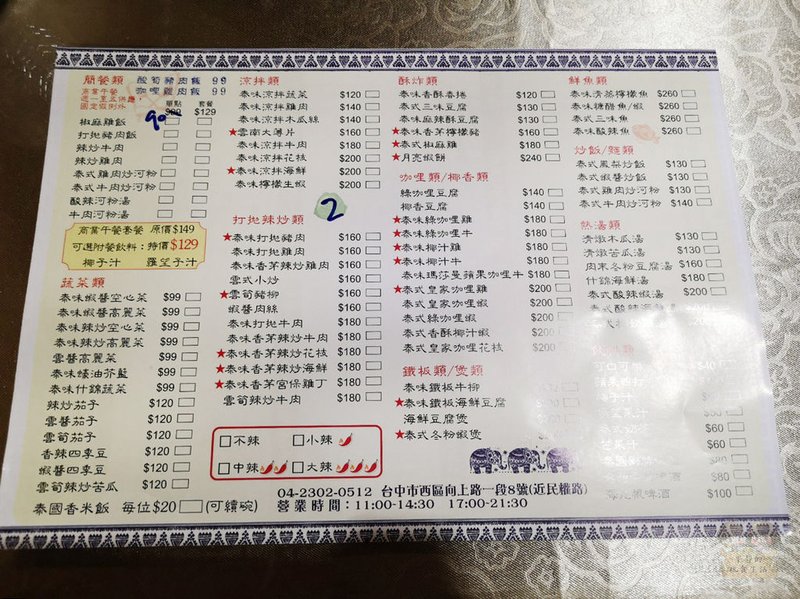 簡餐類 酸筍豬肉飯 99
咖哩雞肉飯 99
商業午餐
週一至五供應,
國定假例外
單點 套餐
$129
90
椒麻雞飯
打拋豬肉飯
辣炒牛肉
辣炒雞肉
泰式雞肉炒河粉
泰式牛肉炒河粉
酸辣河粉湯
牛肉河粉湯
商業午餐套餐 原價$149
可選附餐飲料:特價$129
椰子汁 羅望子汁
蔬菜類
泰味蝦醬空心菜 $99
泰味蝦醬高麗菜 $99
泰味辣炒空心菜 $99
泰味辣炒高麗菜 $99
雲醬高麗菜 $99
泰味蠔油芥藍 $99
泰味什錦蔬菜 $99
辣炒茄子 $120
雲醬茄子 $120
雲筍茄子 $120
香辣四季豆 $120
蝦醬四季豆 $120
雲筍辣炒苦瓜 $120
泰國香米飯 每位$20 (可續碗)
涼拌類
泰味涼拌蔬菜 $120
泰味涼拌雞肉 $140
泰味涼拌木瓜絲 $140
★雲南大薄片 $160
泰味涼拌牛肉 $180
泰味涼拌花枝 $200
★泰味涼拌海鮮 $200
泰味檸檬生蝦 $200
2
打拋辣炒類
★泰味打拋豬肉 $160
泰味打拋雞肉 $160
泰味香茅辣炒雞肉 $160
雲式小炒 $160
★雲筍豬柳 $160
蝦醬肉絲 $160
泰味打拋牛肉 $180
泰味香茅辣炒牛肉 $180
★泰味香茅辣炒花枝 $180
★泰味香茅辣炒海鮮 $180
★泰味香茅宮保雞丁 $180
雲筍辣炒牛肉 $180
不辣 小辣
中辣 大辣
酥炸類
泰味香酥春捲 $120
泰式三味豆腐 $140
泰味麻辣酥豆腐 $140
★泰味香茅檸檬豬 $160
★泰式椒麻雞 $180
★月亮蝦餅 $240
咖哩類/椰香類
綠咖哩豆腐 $140
椰香豆腐 $140
★泰味綠咖哩雞 $180
★泰味綠咖哩牛 $180
★泰味椰汁雞 $180
★泰味椰汁牛 $180
泰味瑪莎曼蘋果咖哩牛 $180
★泰式皇家咖哩雞 $180
泰式皇家咖哩蝦 $200
泰式綠咖哩蝦 $200
泰式香酥椰汁蝦 $200
泰式皇家咖哩花枝 $200
鐵板類/煲類
泰味鐵板牛柳
★泰味鐵板海鮮豆腐
海鮮豆腐煲
★泰式冬粉蝦煲
鮮魚類
泰味清蒸檸檬魚 $260
泰味糖醋魚/蝦 $260
泰式三味魚 $260
泰味酸辣魚 $260
炒飯/麵類
泰式鳳梨炒飯 $130
泰式蝦醬炒飯 $130
泰式雞肉炒河粉 $130
泰式牛肉炒河粉 $140
熱湯類
清燉木瓜湯 $130
清燉苦瓜湯 $130
肉末冬粉豆腐湯 $160
什錦海鮮湯 $180
泰式酸辣蝦湯 $200
$60
$60
$80
$80
$100
04-2302-0512 台中市西區向上路一段8號(近民權路)
營業時間:11:00-14:30 17:00-21:30